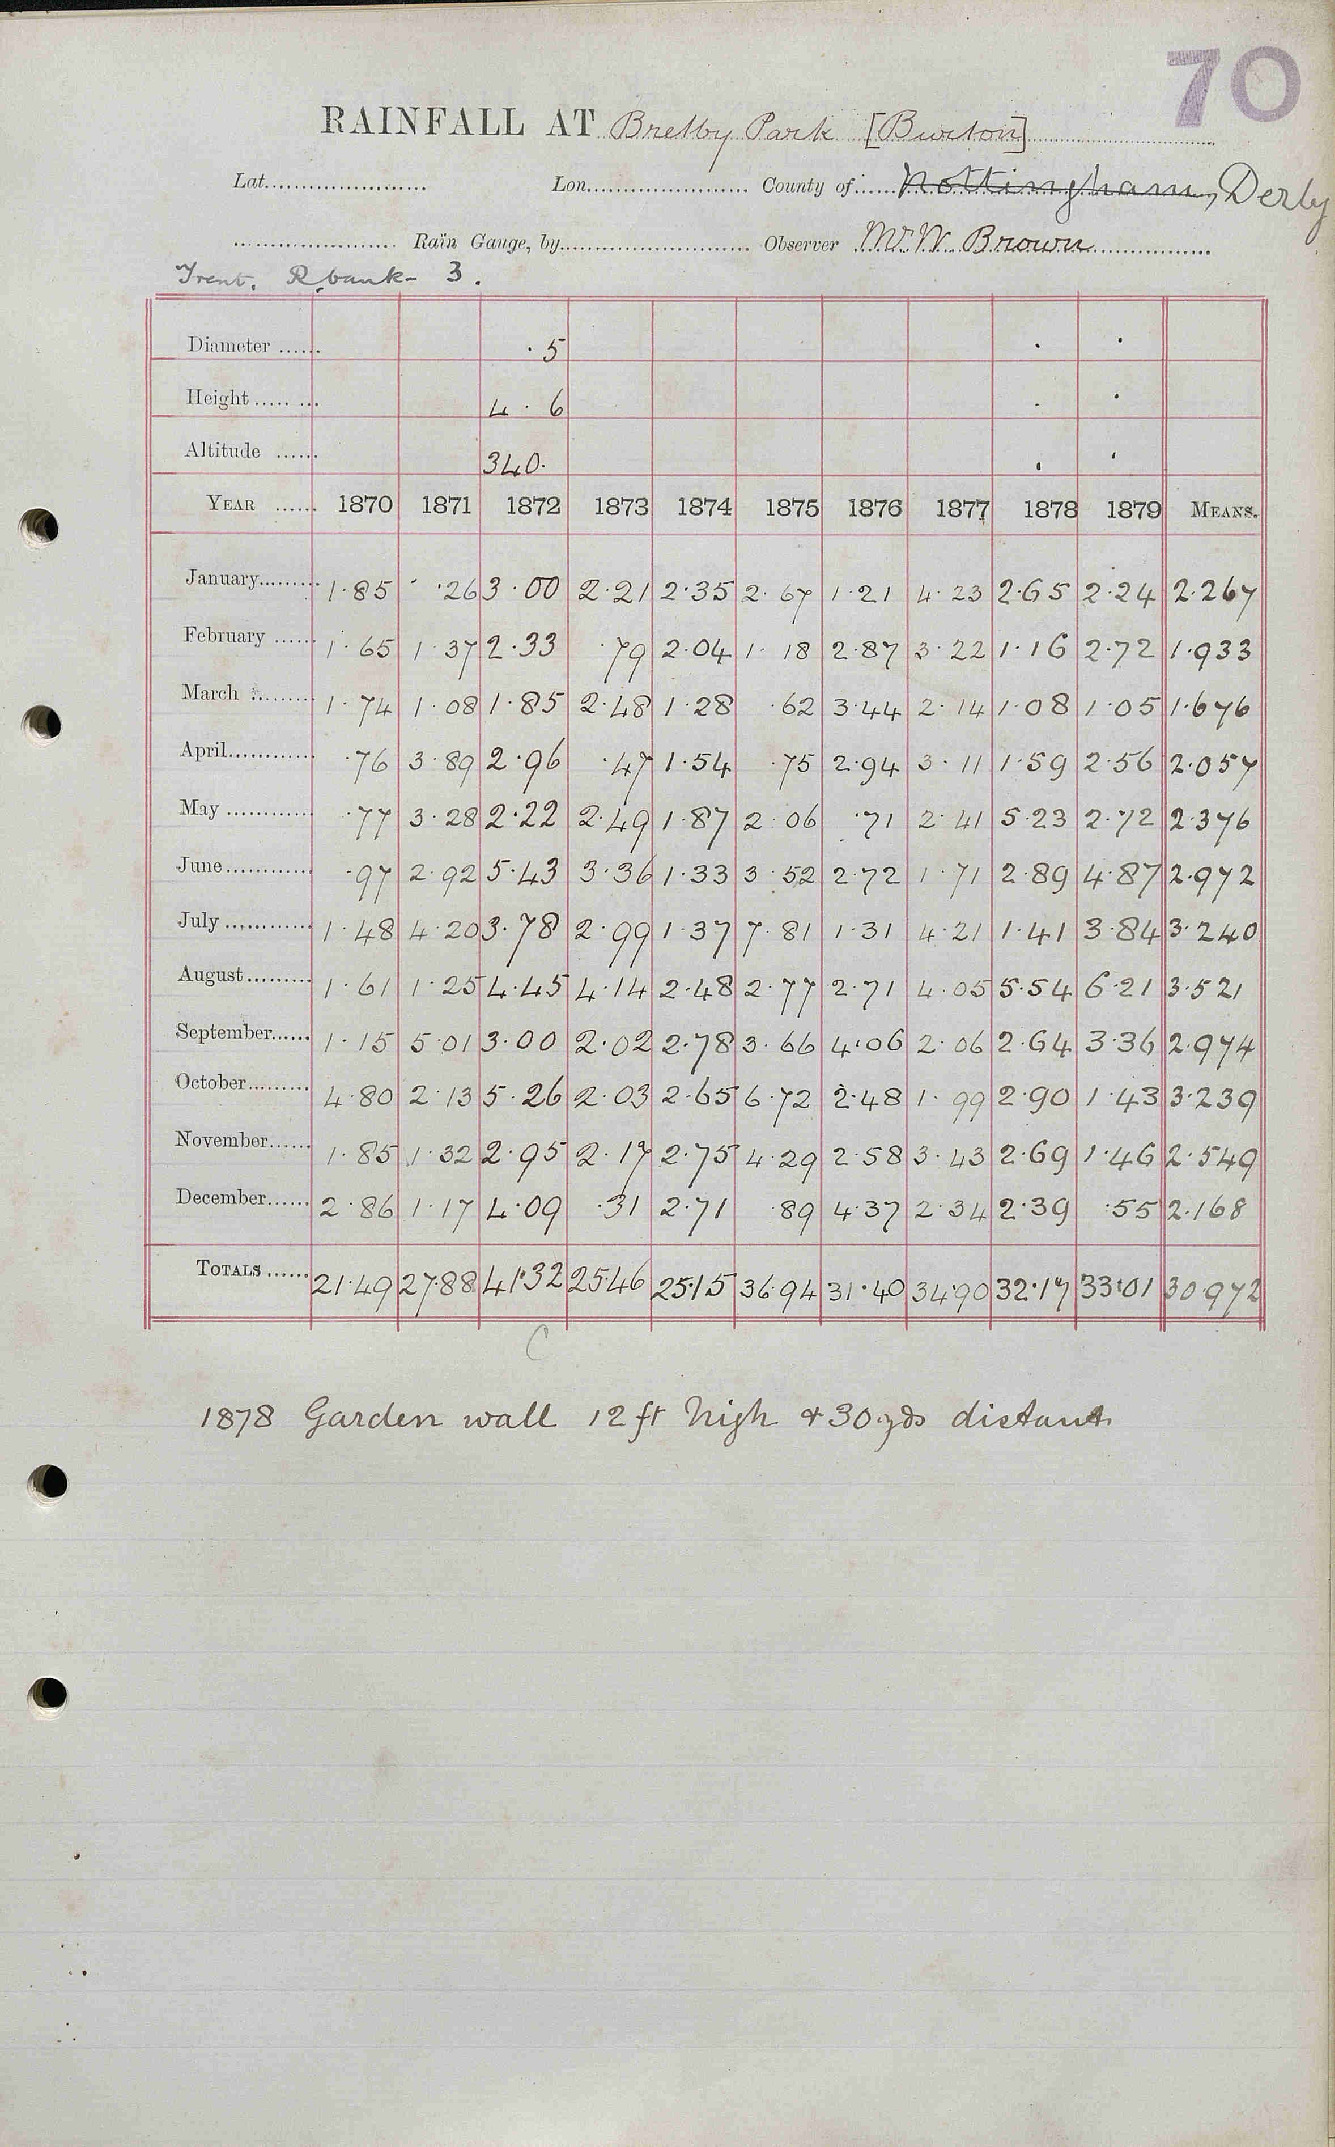 70
RAINFALL AT Bretby Park [Burton]
Lat. Lon. County of Nottingham, Derby
Rain Gauge, by Observer Mr W Brown
Trent. R bank - 3.
Diameter · 5 · ·
Height 4 · 6 · ·
Altitude 340. · ·
YEAR 1870 1871 1872 1873 1874 1875 1876 1877 1878 1879 MEANS.
January 1·85 ·26 3·00 2·21 2·35 2·67 1·21 4·23 2·65 2·24 2·267
February 1·65 1·37 2·33 ·79 2·04 1·18 2·87 3·22 1·16 2·72 1·933
March 1·74 1·08 1·85 2·48 1·28 ·62 3·44 2·14 1·08 1·05 1·676
April ·76 3·89 2·96 ·47 1·54 ·75 2·94 3·11 1·59 2·56 2·057
May ·77 3·28 2·22 2·49 1·87 2·06 ·71 2·41 5·23 2·72 2·376
June ·97 2·92 5·43 3·36 1·33 3·52 2·72 1·71 2·89 4·87 2·972
July 1·48 4·20 3·78 2·99 1·37 7·81 1·31 4·21 1·41 3·84 3·240
August 1·61 1·25 4·45 4·14 2·48 2·77 2·71 4·05 5·54 6·21 3·521
September 1·15 5·01 3·00 2·02 2·78 3·66 4·06 2·06 2·64 3·36 2·974
October 4·80 2·13 5·26 2·03 2·65 6·72 2·48 1·99 2·90 1·43 3·239
November 1·85 1·32 2·95 2·17 2·75 4·29 2·58 3·43 2·69 1·46 2·549
December 2·86 1·17 4·09 ·31 2·71 ·89 4·37 2·34 2·39 ·55 2·168
TOTALS 21·49 27·88 41·32 25·46 25·15 36·94 31·40 34·90 32·17 33·01 30·972
C
1878 Garden wall 12 ft high & 30 yds distant